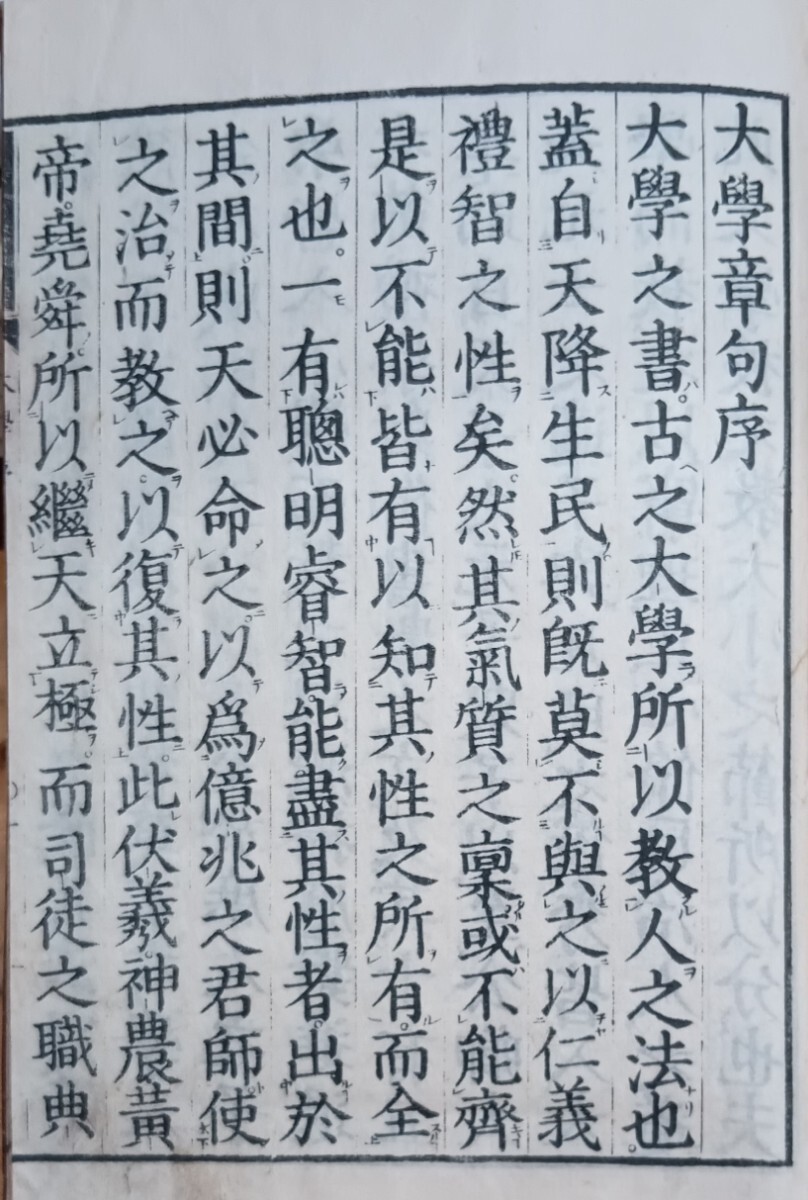 大學章句序
大學之書古之大學所以教人之法也
蓋自天降生民則既莫不與之以仁義
禮智之性矣然其氣質之稟或不能齊
是以不能皆有以知其性之所有而全
之也一有聰明睿智能盡其性者出於
其間則天必命之以爲億兆之君師使
之治而教之以復其性此伏羲神農黃
帝堯舜所以繼天立極而司徒之職典